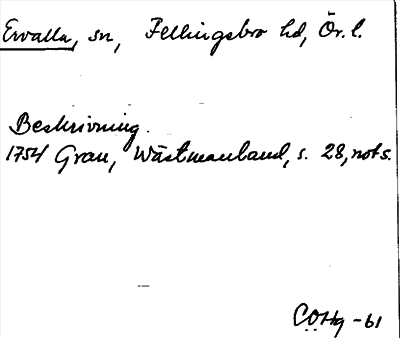 Ervalla, sn, Fellingsbro hd, Ör. l.
Beskrivning.
1754 Grau, Wästmanland, s. 28, not s.
C.O.Hg -61